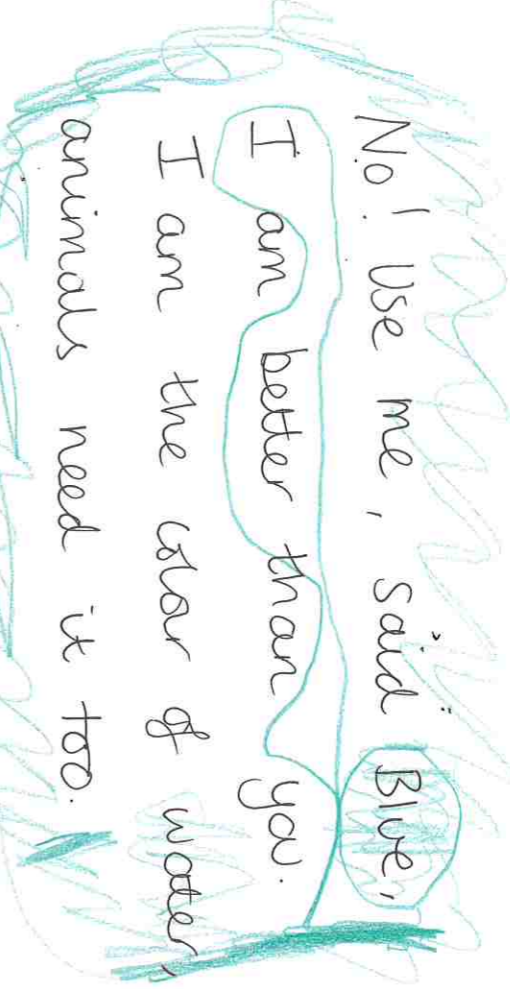 No! Use me, said Blue,
I am better than you.
I am the color of water,
animals need it too.